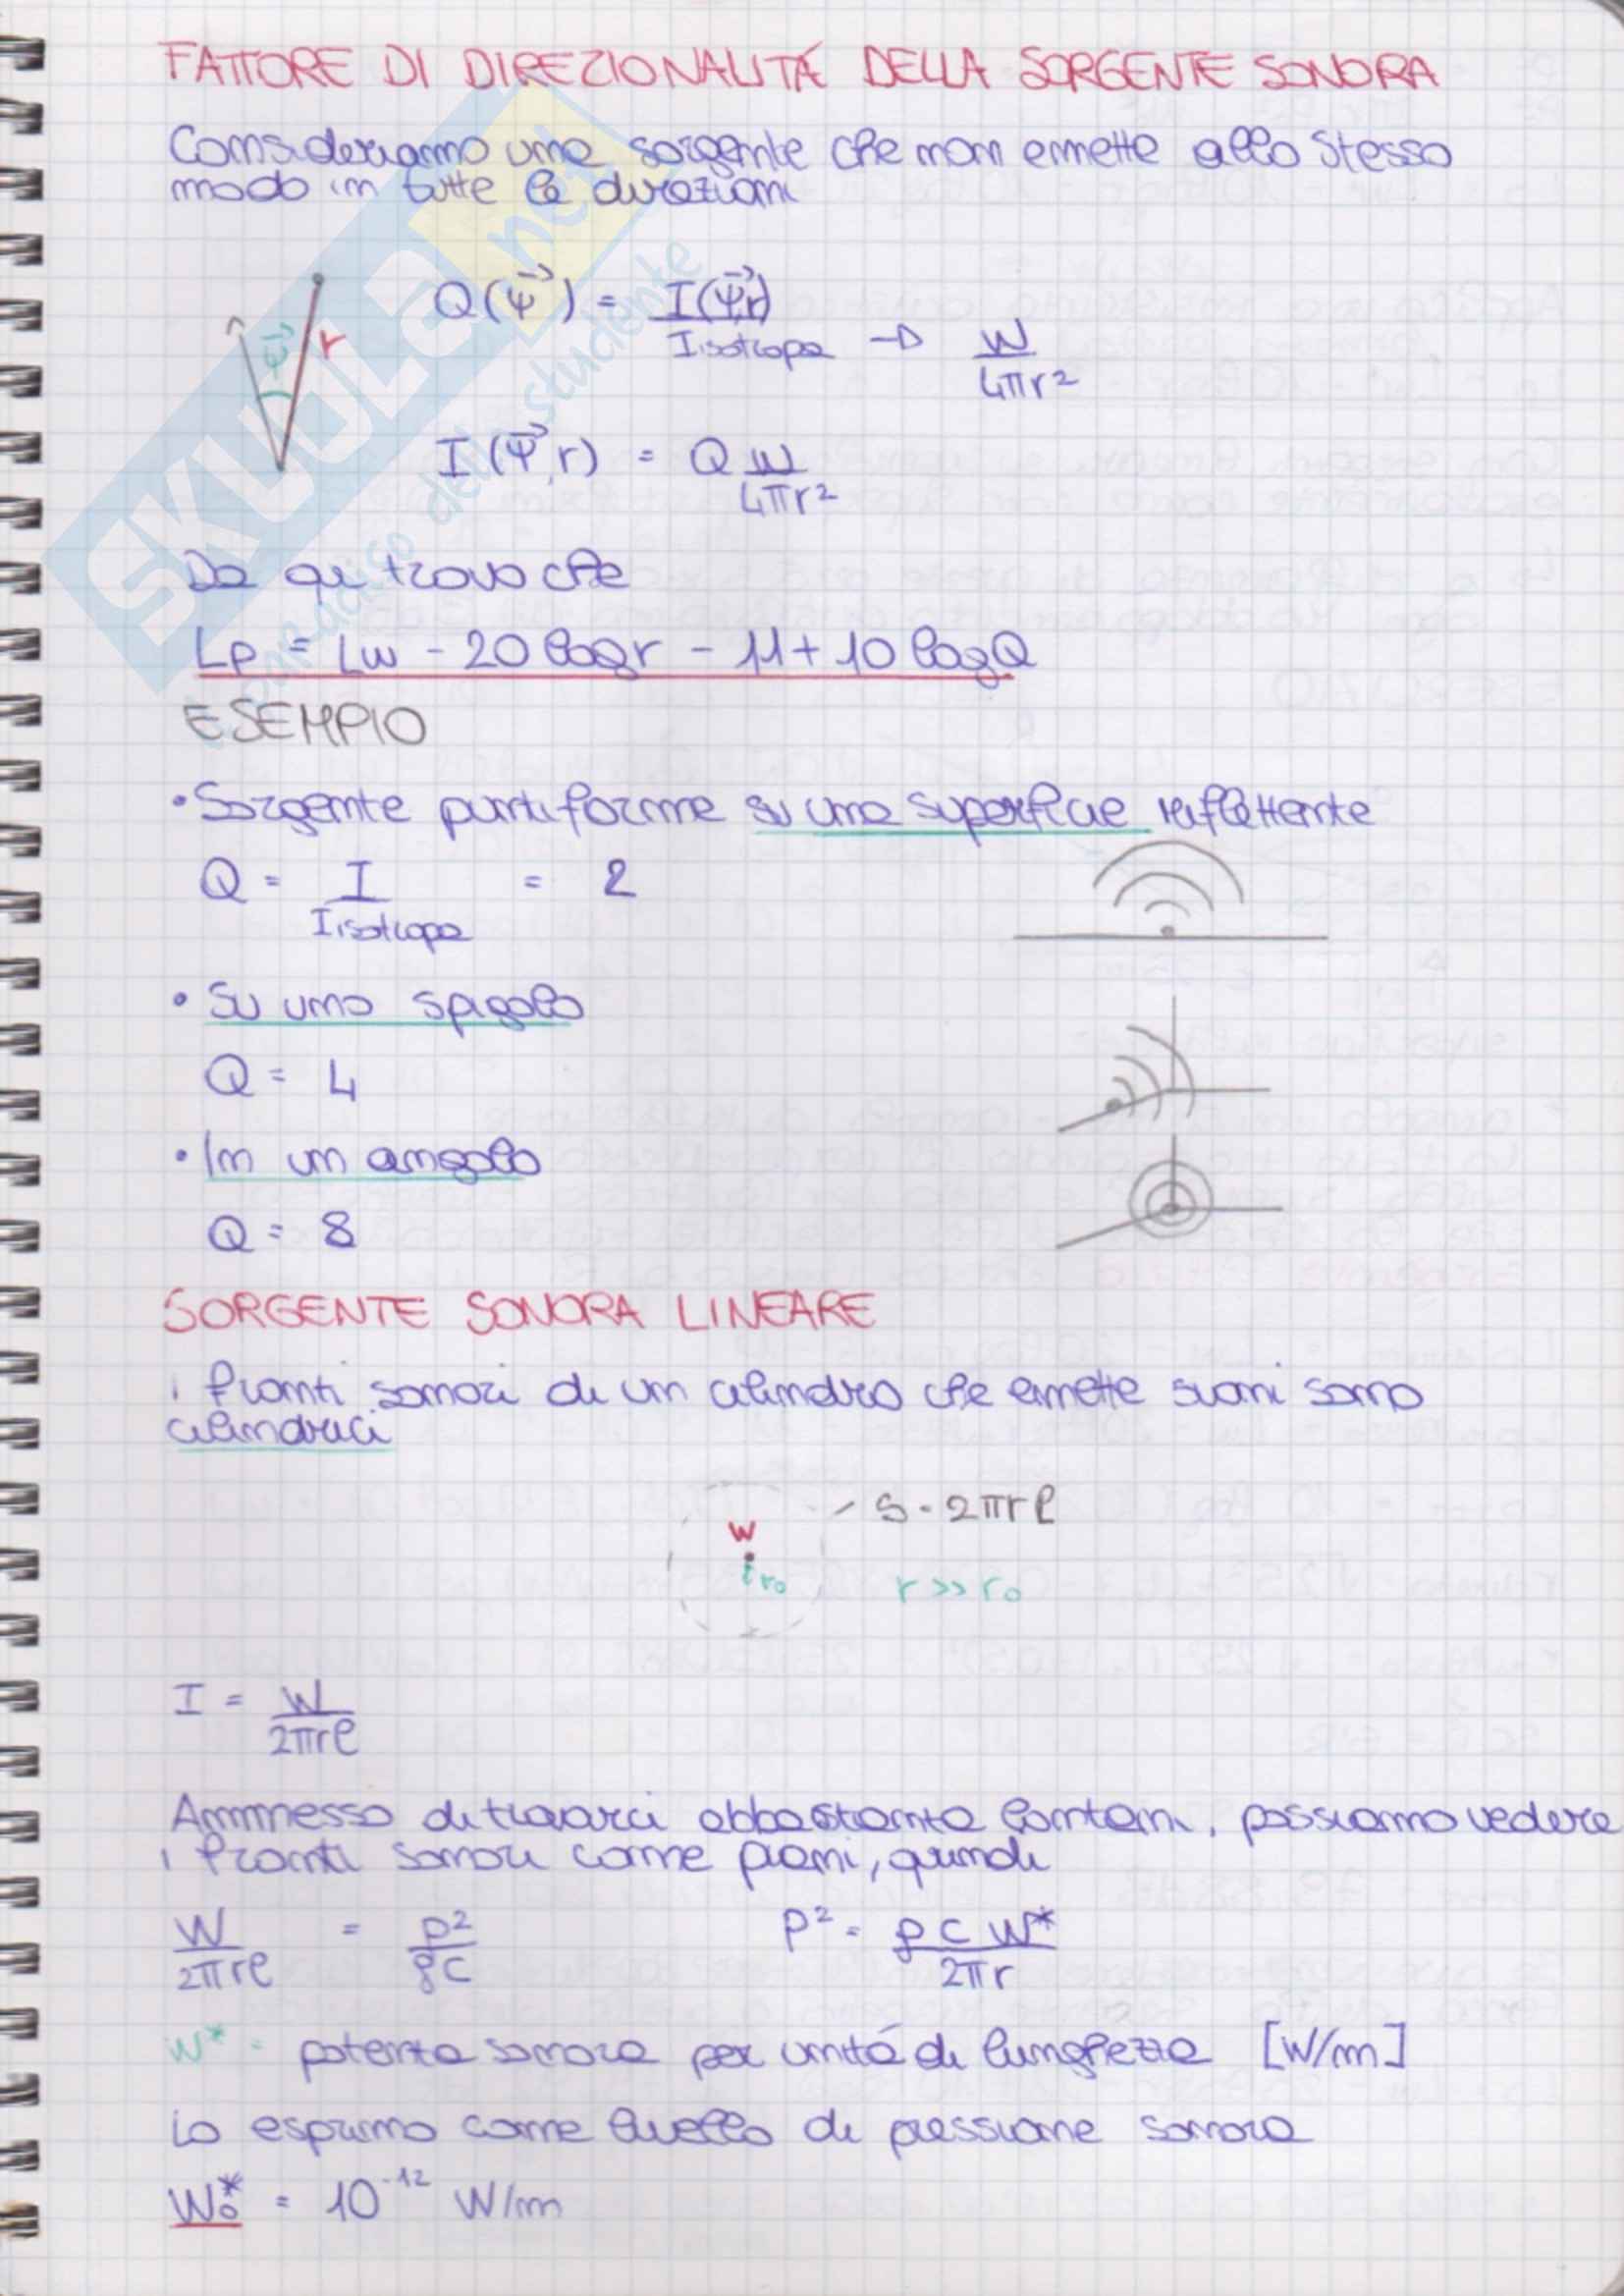 FATTORE DI DIREZIONALITÁ DELLA SORGENTE SONORA
Consideriamo una sorgente che non emette allo stesso
modo in tutte le direzioni
Q(ψ⃗) = I(ψ⃗,r) / Iisotropa → W / 4πr²
ψ⃗ r
I(ψ⃗,r) = Q W / 4πr²
Da qui trovo che
Lp = Lw - 20 log r - 11 + 10 log Q
ESEMPIO
• Sorgente puntiforme su una superficie riflettente
Q = I / Iisotropa = 2
• Su uno spigolo
Q = 4
• In un angolo
Q = 8
SORGENTE SONORA LINEARE
i fronti sonori di un cilindro che emette suoni sono
cilindrici
S = 2πrl
W
r₀ r >> r₀
I = W / 2πrl
Ammesso di trovarci abbastanza lontani, possiamo vedere
i fronti sonori come piani, quindi
W / 2πrl = p² / ρc p² = ρ c W* / 2πr
W* = potenza sonora per unitá di lunghezza [W/m]
Lo esprimo come livello di pressione sonora
W₀* = 10⁻¹² W/m
SKUOLA.net
dello studente